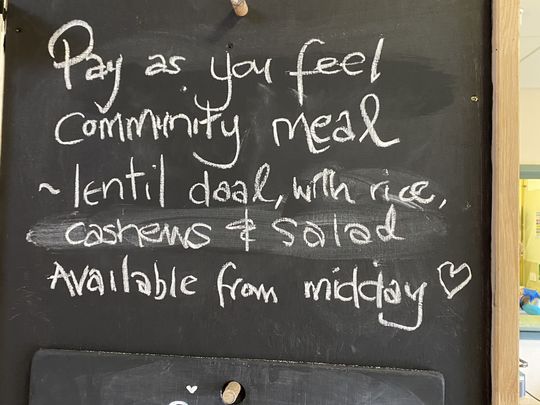 Pay as you feel
community meal
~ lentil daal, with rice,
cashews & salad
Available from midday ♡